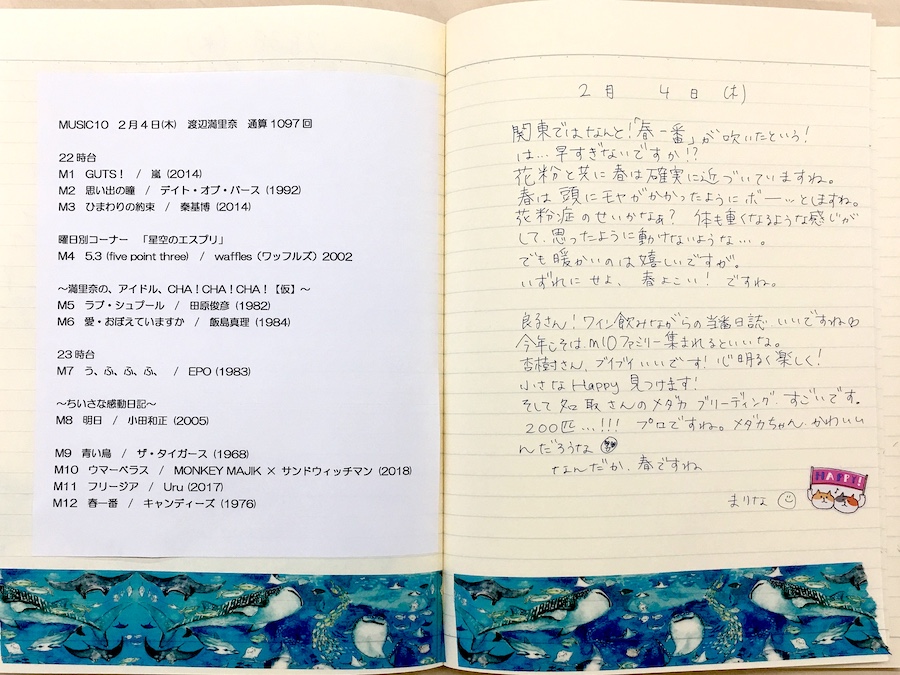 MUSIC10　2月4日(木)　渡辺満里奈　通算1097回
22時台
M1　GUTS！　/　嵐 (2014)
M2　思い出の瞳　/　デイト・オブ・バース (1992)
M3　ひまわりの約束　/　秦基博 (2014)
曜日別コーナー　「星空のエスプリ」
M4　5.3 (five point three)　/　waffles (ワッフルズ) 2002
～満里奈の、アイドル、CHA！CHA！CHA！【仮】～
M5　ラブ・シュプール　/　田原俊彦 (1982)
M6　愛・おぼえていますか　/　飯島真理 (1984)
23時台
M7　う、ふ、ふ、ふ、　/　EPO (1983)
～ちいさな感動日記～
M8　明日　/　小田和正 (2005)
M9　青い鳥　/　ザ・タイガース (1968)
M10　ウマーベラス　/　MONKEY MAJIK × サンドウィッチマン (2018)
M11　フリージア　/　Uru (2017)
M12　春一番　/　キャンディーズ (1976)
2月　4日　(木)
関東ではなんと!「春一番」が吹いたという!
は…早すぎないですか!?
花粉と共に春は確実に近づいていますね。
春は頭にモヤがかかったようにボーッとしますね。
花粉症のせいかなぁ?　体も重くなるような感じが
して、思ったように動けないような…。
でも暖かいのは嬉しいですが。
いずれにせよ、春よこい!ですね。
良さん!ワイン飲みながらの当番日誌、いいですね♡
今年こそは、M10ファミリー集まれるといいな。
杏樹さん、ブイブイいいです!心明るく楽しく!
小さなHappy見つけます!
そして名取さんのメダカブリーディング、すごいです。
200匹…!!!　プロですね。メダカちゃん、かわいい
んだろうな
なんだか、春ですね
まりな
HAPPY!